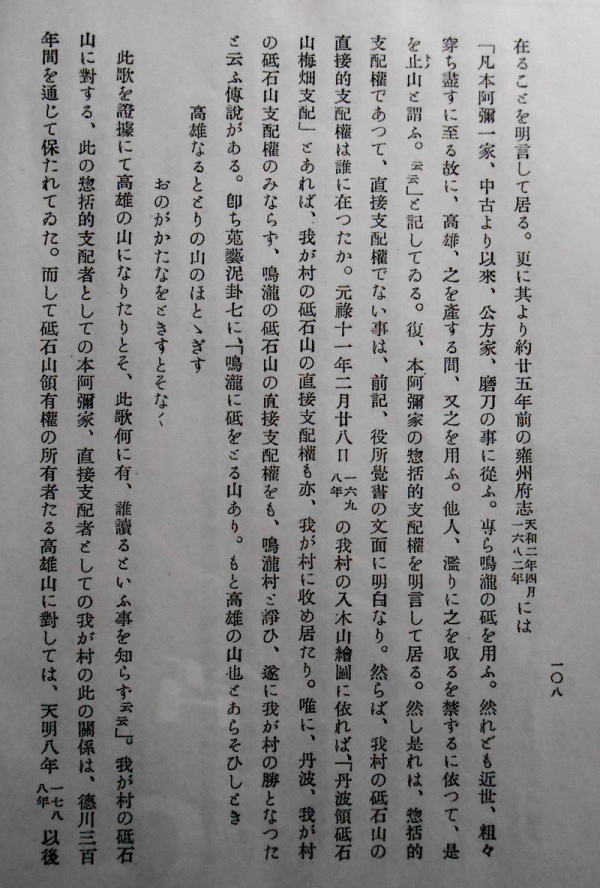 在ることを明言して居る。更に其より約廿五年前の雍州府志天和二年四月一六八二年には
「凡本阿彌一家、中古より以來、公方家、磨刀の事に從ふ。專ら鳴瀧の砥を用ふ。然れども近世、粗々
穿ち盡すに至る故に、高雄、之を產する間、又之を用ふ。他人、濫りに之を取るを禁ずるに依つて、是
を止山と謂ふ。云云」と記してゐる。復、本阿彌家の惣括的支配權を明言して居る。然し是れは、惣括的
支配權であつて、直接支配權でない事は、前記、役所覺書の文面に明白なり。然らば、我村の砥石山の
直接的支配權は誰に在つたか。元祿十一年二月廿八日一六九八年の我村の入木山繪圖に依れば、「丹波領砥石
山梅畑支配」とあれば、我が村の砥石山の直接支配權も亦、我が村に收め居たり。唯に、丹波、我が村
の砥石山支配權のみならず、鳴瀧の砥石山の直接支配權をも、鳴瀧村と諍ひ、遂に我が村の勝となつた
と云ふ傳說がある。卽ち莵藝泥卦七に、「鳴瀧に砥をとる山あり。もと高雄の山也とあらそひしとき
高雄なるととりの山のほとゝぎす
おのがかたなをときすとそなく
此歌を證據にて高雄の山になりたりとそ、此歌何に有、誰讀るといふ事を知らず云云」。我が村の砥石
山に對する、此の惣括的支配者としての本阿彌家、直接支配者としての我が村の此の關係は、德川三百
年間を通じて保たれてゐた。而して砥石山領有權の所有者たる高雄山に對しては、天明八年一七八八年以後
一〇八